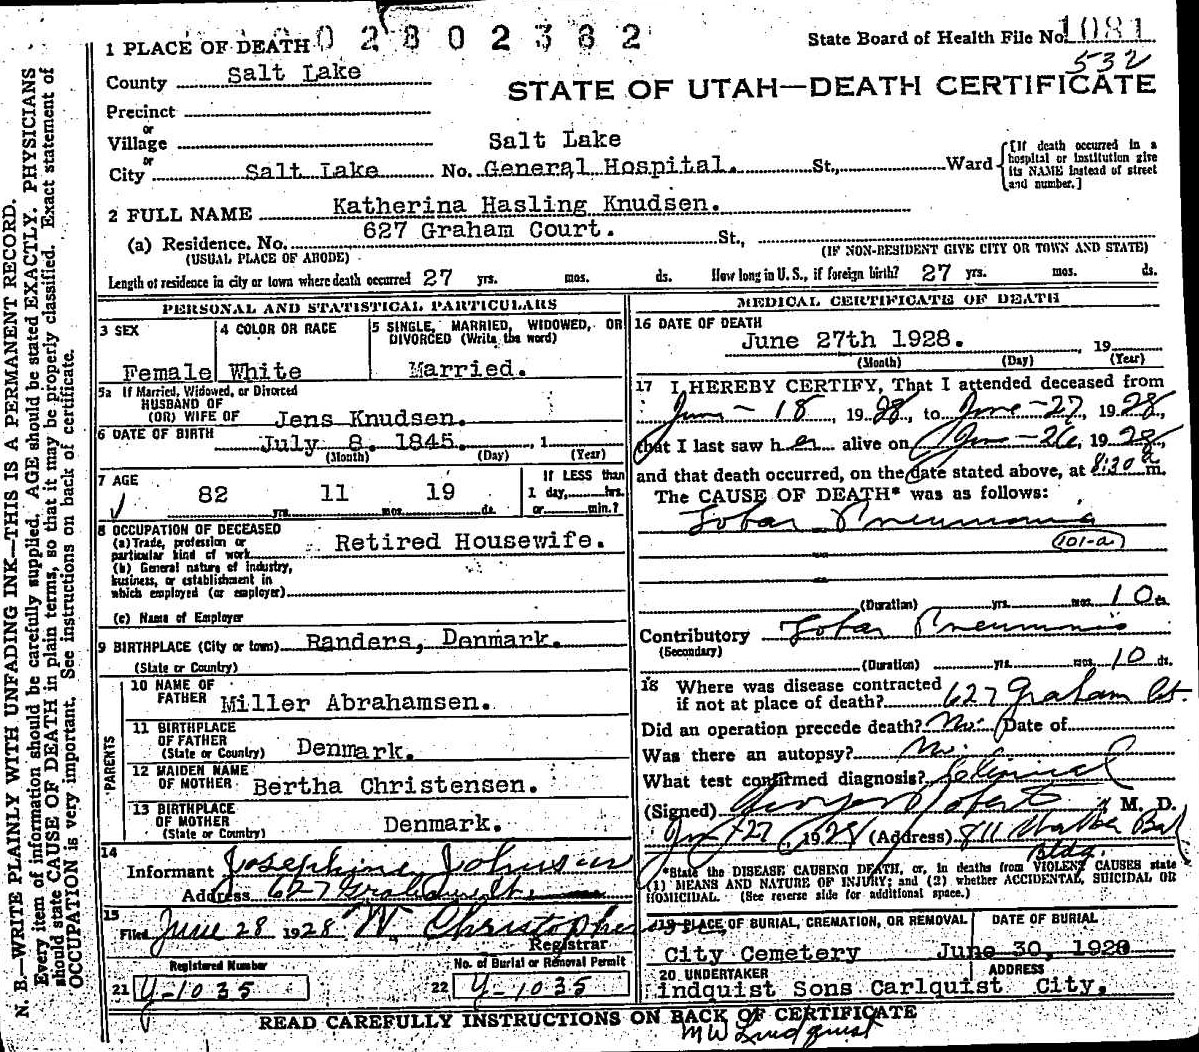 02802382
1 PLACE OF DEATH
State Board of Health File No. 1081
532
County Salt Lake
STATE OF UTAH—DEATH CERTIFICATE
Precinct
or
Village
or
City Salt Lake No. Salt Lake General Hospital. St., Ward
[If death occurred in a hospital or institution give its NAME instead of street and number.]
2 FULL NAME Katherina Hasling Knudsen.
(a) Residence. No. 627 Graham Court. St.,
(USUAL PLACE OF ABODE)
(IF NON-RESIDENT GIVE CITY OR TOWN AND STATE)
Length of residence in city or town where death occurred 27 yrs. mos. ds. How long in U. S., if foreign birth? 27 yrs. mos. ds.
PERSONAL AND STATISTICAL PARTICULARS
3 SEX
Female
4 COLOR OR RACE
White
5 SINGLE, MARRIED, WIDOWED, OR
DIVORCED (Write the word)
Married.
5a If Married, Widowed, or Divorced
HUSBAND OF
(OR) WIFE OF Jens Knudsen.
6 DATE OF BIRTH July 8, 1845. , 1
(Month) (Day) (Year)
7 AGE
82 yrs. 11 mos. 19 ds.
If LESS than
1 day, hrs.
or min.?
8 OCCUPATION OF DECEASED
(a) Trade, profession or
particular kind of work Retired Housewife.
(b) General nature of industry,
business, or establishment in
which employed (or employer)
(c) Name of Employer
9 BIRTHPLACE (City or town) Randers, Denmark.
(State or Country)
PARENTS
10 NAME OF
FATHER Miller Abrahamsen.
11 BIRTHPLACE
OF FATHER
(State or Country) Denmark.
12 MAIDEN NAME
OF MOTHER Bertha Christensen.
13 BIRTHPLACE
OF MOTHER
(State or Country) Denmark.
14
Informant Josephine Johnson
Address 627 Graham Ct.
15
Filed June 28 1928 W. Christopherson
Registrar
Registered Number
21 Y-1035
No. of Burial or Removal Permit
22 Y-1035
MEDICAL CERTIFICATE OF DEATH
16 DATE OF DEATH
June 27th 1928. , 19
(Month) (Day) (Year)
17 I HEREBY CERTIFY, That I attended deceased from
June-18, 1928, to June-27, 1928,
that I last saw her alive on June-26, 1928,
and that death occurred, on the date stated above, at 8:30 a m.
The CAUSE OF DEATH* was as follows:
Lobar Pneumonia
(101-a)
(Duration) yrs. mos. 10 ds.
Contributory Lobar Pneumonia
(Secondary)
(Duration) yrs. mos. 10 ds.
18 Where was disease contracted
if not at place of death? 627 Graham Ct.
Did an operation precede death? No. Date of
Was there an autopsy? No.
What test confirmed diagnosis? Clinical
(Signed) M. D.
June 27, 1928 (Address) 811 Walker
Bldg.
*State the DISEASE CAUSING DEATH, or, in deaths from VIOLENT CAUSES state
(1) MEANS AND NATURE OF INJURY; and (2) whether ACCIDENTAL, SUICIDAL OR
HOMICIDAL. (See reverse side for additional space.)
19 PLACE OF BURIAL, CREMATION, OR REMOVAL
City Cemetery
DATE OF BURIAL
June 30, 1928
20 UNDERTAKER
indquist Sons Carlquist
ADDRESS
City.
READ CAREFULLY INSTRUCTIONS ON BACK OF CERTIFICATE
M W Lindquist
N. B.—WRITE PLAINLY WITH UNFADING INK—THIS IS A PERMANENT RECORD.
Every item of information should be carefully supplied. AGE should be stated EXACTLY. PHYSICIANS
should state CAUSE OF DEATH in plain terms, so that it may be properly classified. Exact statement of
OCCUPATION is very important. See instructions on back of certificate.